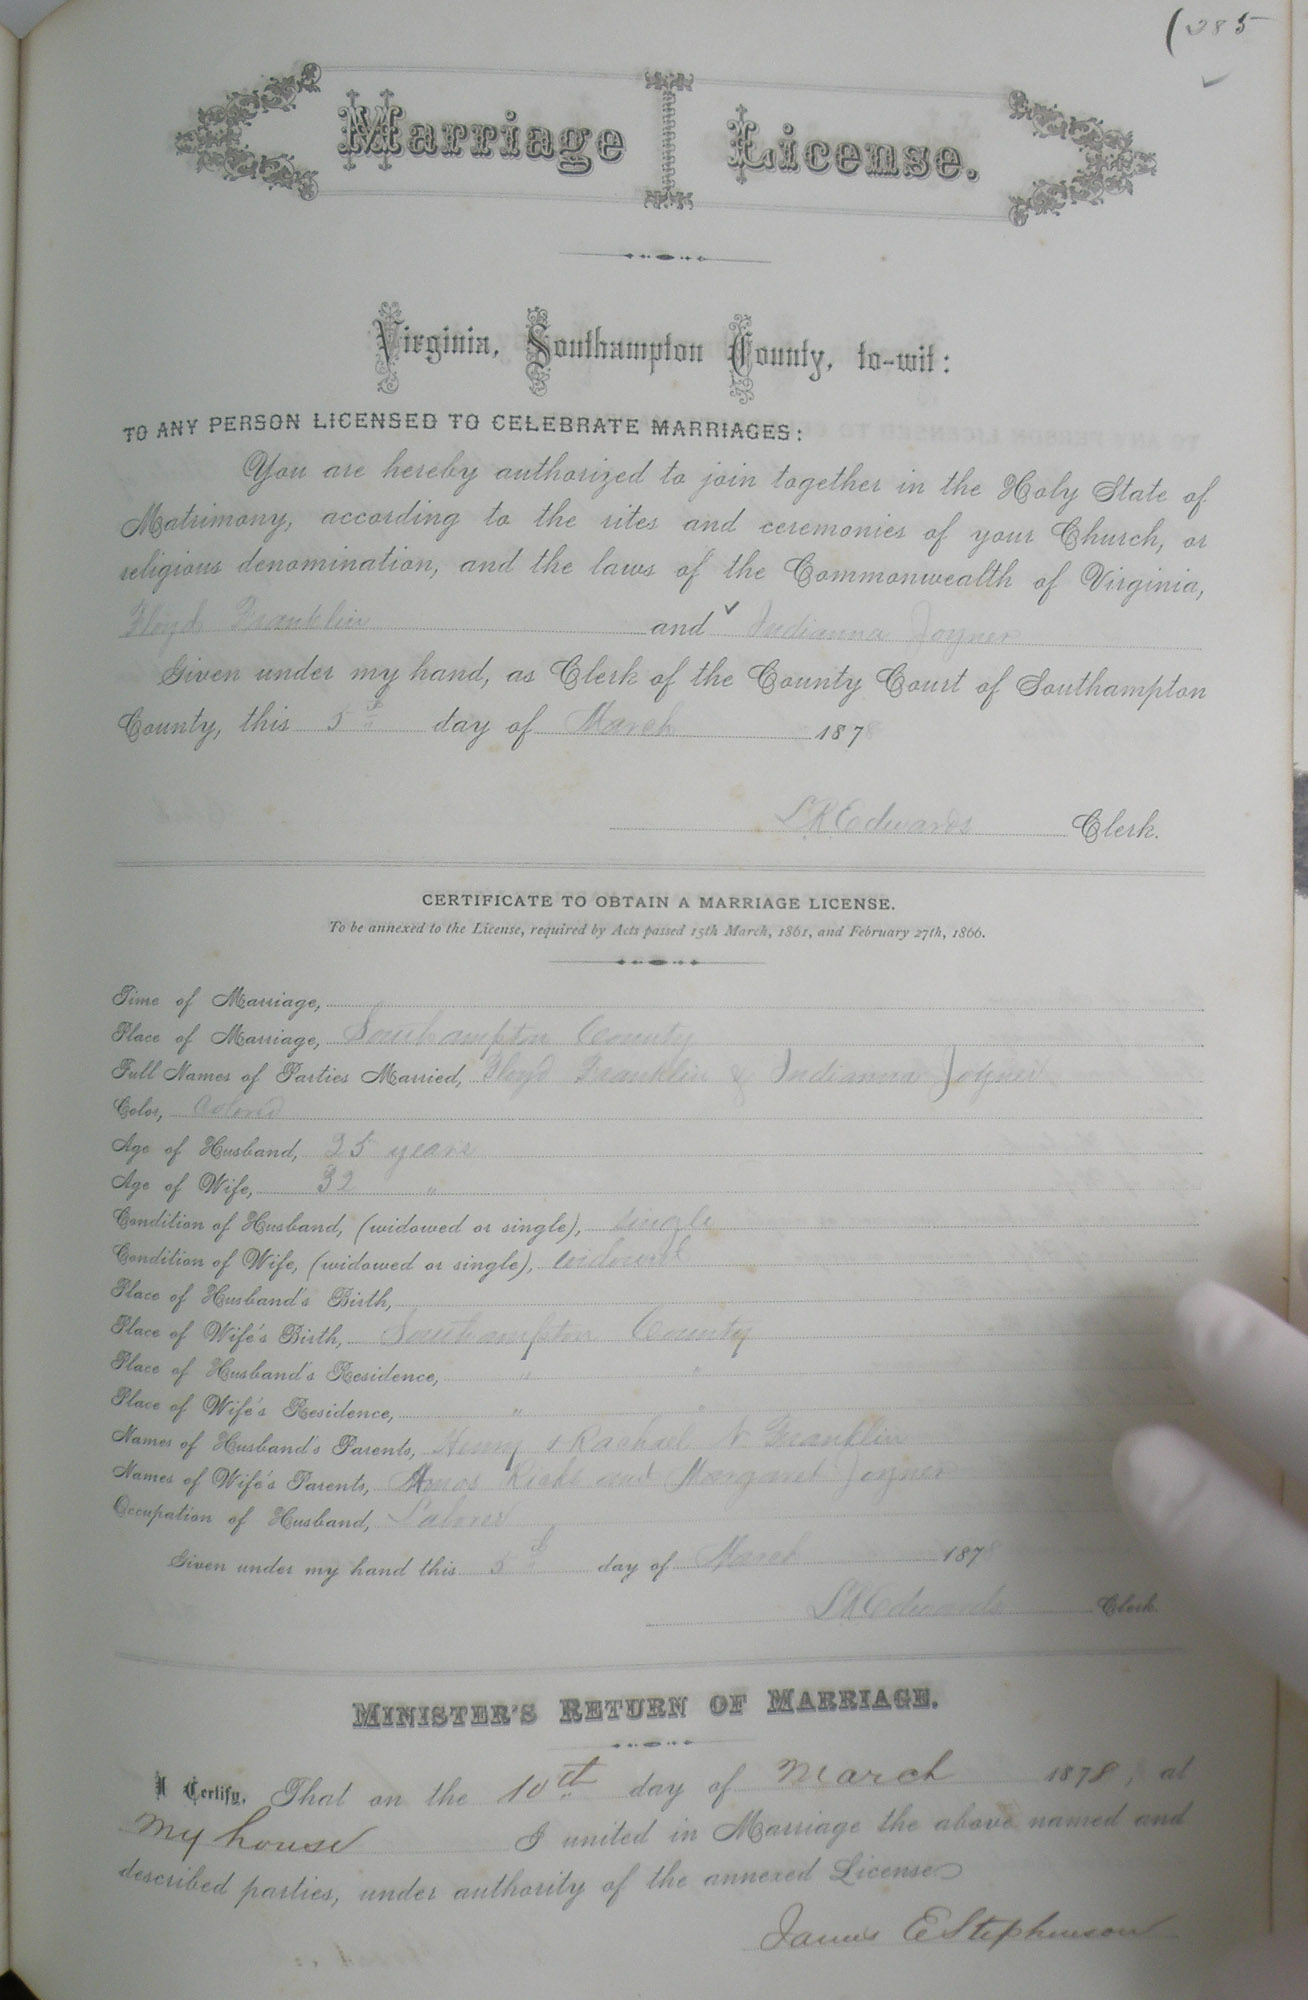 285
Marriage License.
Virginia, Southampton County, to-wit:
TO ANY PERSON LICENSED TO CELEBRATE MARRIAGES:
You are hereby authorized to join together in the Holy State of
Matrimony, according to the rites and ceremonies of your Church, or
religious denomination, and the laws of the Commonwealth of Virginia,
Floyd Franklin and Indianna Joyner
Given under my hand, as Clerk of the County Court of Southampton
County, this 5th day of March 1878
L R Edwards Clerk.
CERTIFICATE TO OBTAIN A MARRIAGE LICENSE.
To be annexed to the License, required by Acts passed 15th March, 1861, and February 27th, 1866.
Time of Marriage,
Place of Marriage, Southampton County
Full Names of Parties Married, Floyd Franklin & Indianna Joyner
Color, Colored
Age of Husband, 25 years
Age of Wife, 32 "
Condition of Husband, (widowed or single), single
Condition of Wife, (widowed or single), widowed
Place of Husband's Birth,
Place of Wife's Birth, Southampton County
Place of Husband's Residence, " "
Place of Wife's Residence, " "
Names of Husband's Parents, Henry & Rachael N Franklin
Names of Wife's Parents, Amos Ricks and Margaret Joyner
Occupation of Husband, Laborer
Given under my hand this 5th day of March 1878
L R Edwards Clerk.
MINISTER'S RETURN OF MARRIAGE.
I Certify, That on the 10th day of March 1878, at
my house I united in Marriage the above named and
described parties, under authority of the annexed License
James E Stephenson